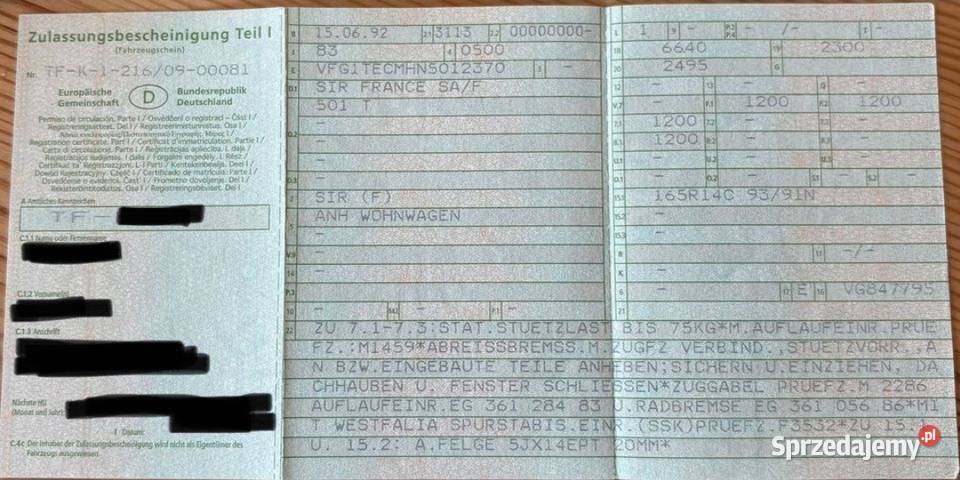 Zulassungsbescheinigung Teil I
(Fahrzeugschein)
Nr. TF-K-1-216/09-00081
Europäische Gemeinschaft
D
Bundesrepublik Deutschland
Permiso de circulación. Parte I / Osvědčení o registraci – Část I /
Registreringsattest. Del I / Registreerimistunnistus. Osa I /
Registration certificate. Part I / Certificat d'immatriculation. Partie I /
Carta di circolazione. Parte I / Reģistrācijas apliecība. I. daļa /
Registracijos liudijimas. I dalis / Forgalmi engedély. I. Rész /
Dowód Rejestracyjny. Część I / Certificado de matrícula. Parte I /
Osvedčenie o evidencii. Časť I / Prometno dovoljenje. Del I /
Rekisteröintitodistus. Osa I / Registreringsbeviset. Del I
A Amtliches Kennzeichen
TF-
C.1.1 Name oder Firmenname
C.1.2 Vorname(n)
C.1.3 Anschrift
Nächste HU
(Monat und Jahr)
I Datum:
C.4c Der Inhaber der Zulassungsbescheinigung wird nicht als Eigentümer des Fahrzeugs ausgewiesen.
B 15.06.92 2.1 3113 2.2 00000000-
J 83 4 0500
E VFG1TECMHN5012370 3 -
D.1 SIR FRANCE SA/F
501 T
-
D.2 -
-
-
D.3 -
2 SIR (F)
5 ANH WOHNWAGEN
-
V.9 -
14 -
P.3 -
10 - 14.1 - P.1 -
L 1 9 - P.2 P.4 - /- T -
18 6640 19 2300
20 2495 G -
12 - 13 - Q -
V.7 - F.1 1200 F.2 1200
7.1 1200 7.2 - 7.3 -
8.1 1200 8.2 - 8.3 -
U.1 - U.2 - U.3 -
O.1 - O.2 - S.1 - S.2 -
15.1 165R14C 93/91N
15.2 -
15.3 -
R - 11 -/-
K -
6 - 17 E 16 VG847795
21 -
22 ZU 7.1-7.3:STAT.STUETZLAST BIS 75KG*M.AUFLAUFEINR.PRUE
FZ.:M1459*ABREISSBREMSS.M.ZUGFZ VERBIND.,STUETZVORR.,A
N BZW.EINGEBAUTE TEILE ANHEBEN;SICHERN U.EINZIEHEN, DA
CHHAUBEN U. FENSTER SCHLIESSEN*ZUGGABEL PRUEFZ.M 2286
AUFLAUFEINR.EG 361 284 83 U.RADBREMSE EG 361 056 86*MI
T WESTFALIA SPURSTABIS.EINR.(SSK)PRUEFZ.F3532*ZU 15.1
U. 15.2: A.FELGE 5JX14EPT 20MM*
Sprzedajemy.pl